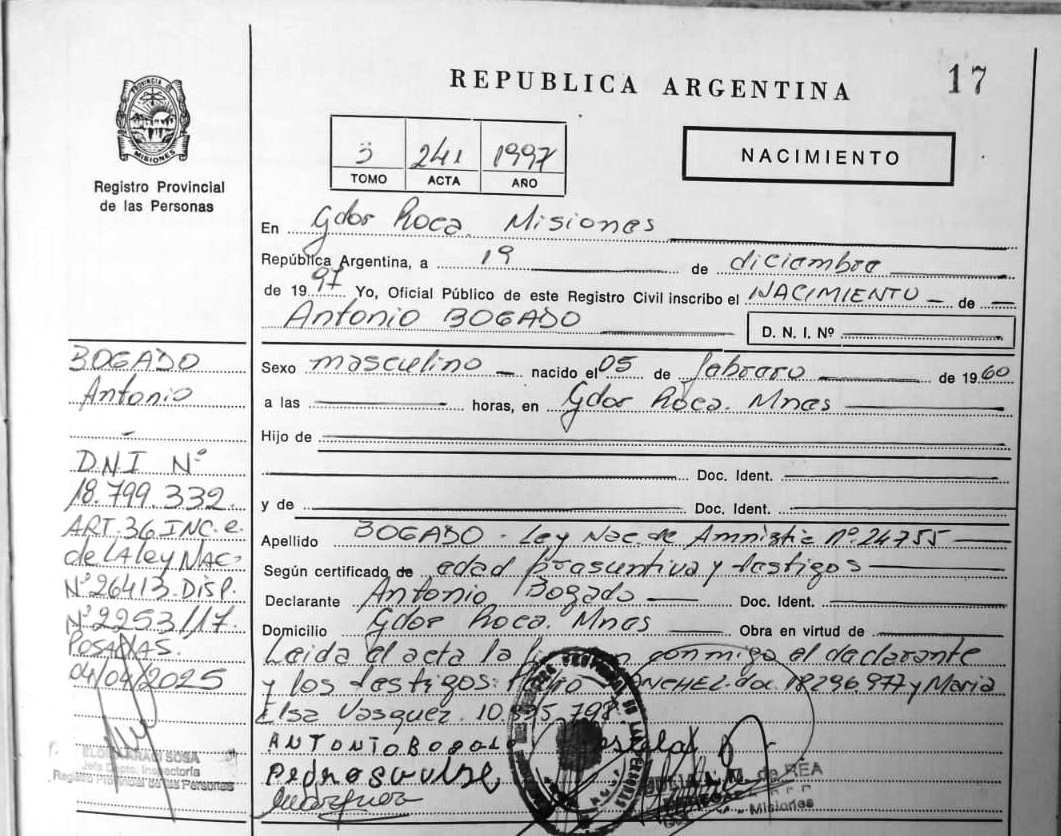 REPUBLICA ARGENTINA
17
PROVINCIA DE MISIONES
Registro Provincial
de las Personas
3 241 1997
TOMO ACTA AÑO
NACIMIENTO
En Gdor Roca. Misiones
República Argentina, a 19 de diciembre
de 1997 Yo, Oficial Público de este Registro Civil inscribo el NACIMIENTO de
Antonio BOGADO D. N. I. Nº
Sexo masculino nacido el 05 de febrero de 1960
a las horas, en Gdor Roca. Mnes
Hijo de
Doc. Ident.
y de Doc. Ident.
Apellido BOGADO - Ley Nac. de Amnistia Nº 24755
Según certificado de edad presuntiva y testigos
Declarante Antonio Bogado Doc. Ident.
Domicilio Gdor Roca. Mnes Obra en virtud de
Leida el acta la conmigo el declarante
y los testigos: doc. 18296.977 y Maria
Elsa Vasquez. 10.
ANTONIO Bogado
BOGADO
Antonio
DNI Nº
18.799.332.
ART. 36 INC. e.
de LA Ley NAC.
Nº 26413. DISP.
Nº 2253/17.
POSADAS.
04/04/2025
SOSA
Jefa Dpto. Inspectoría
Registro Provincial de las Personas
de REA
Misiones